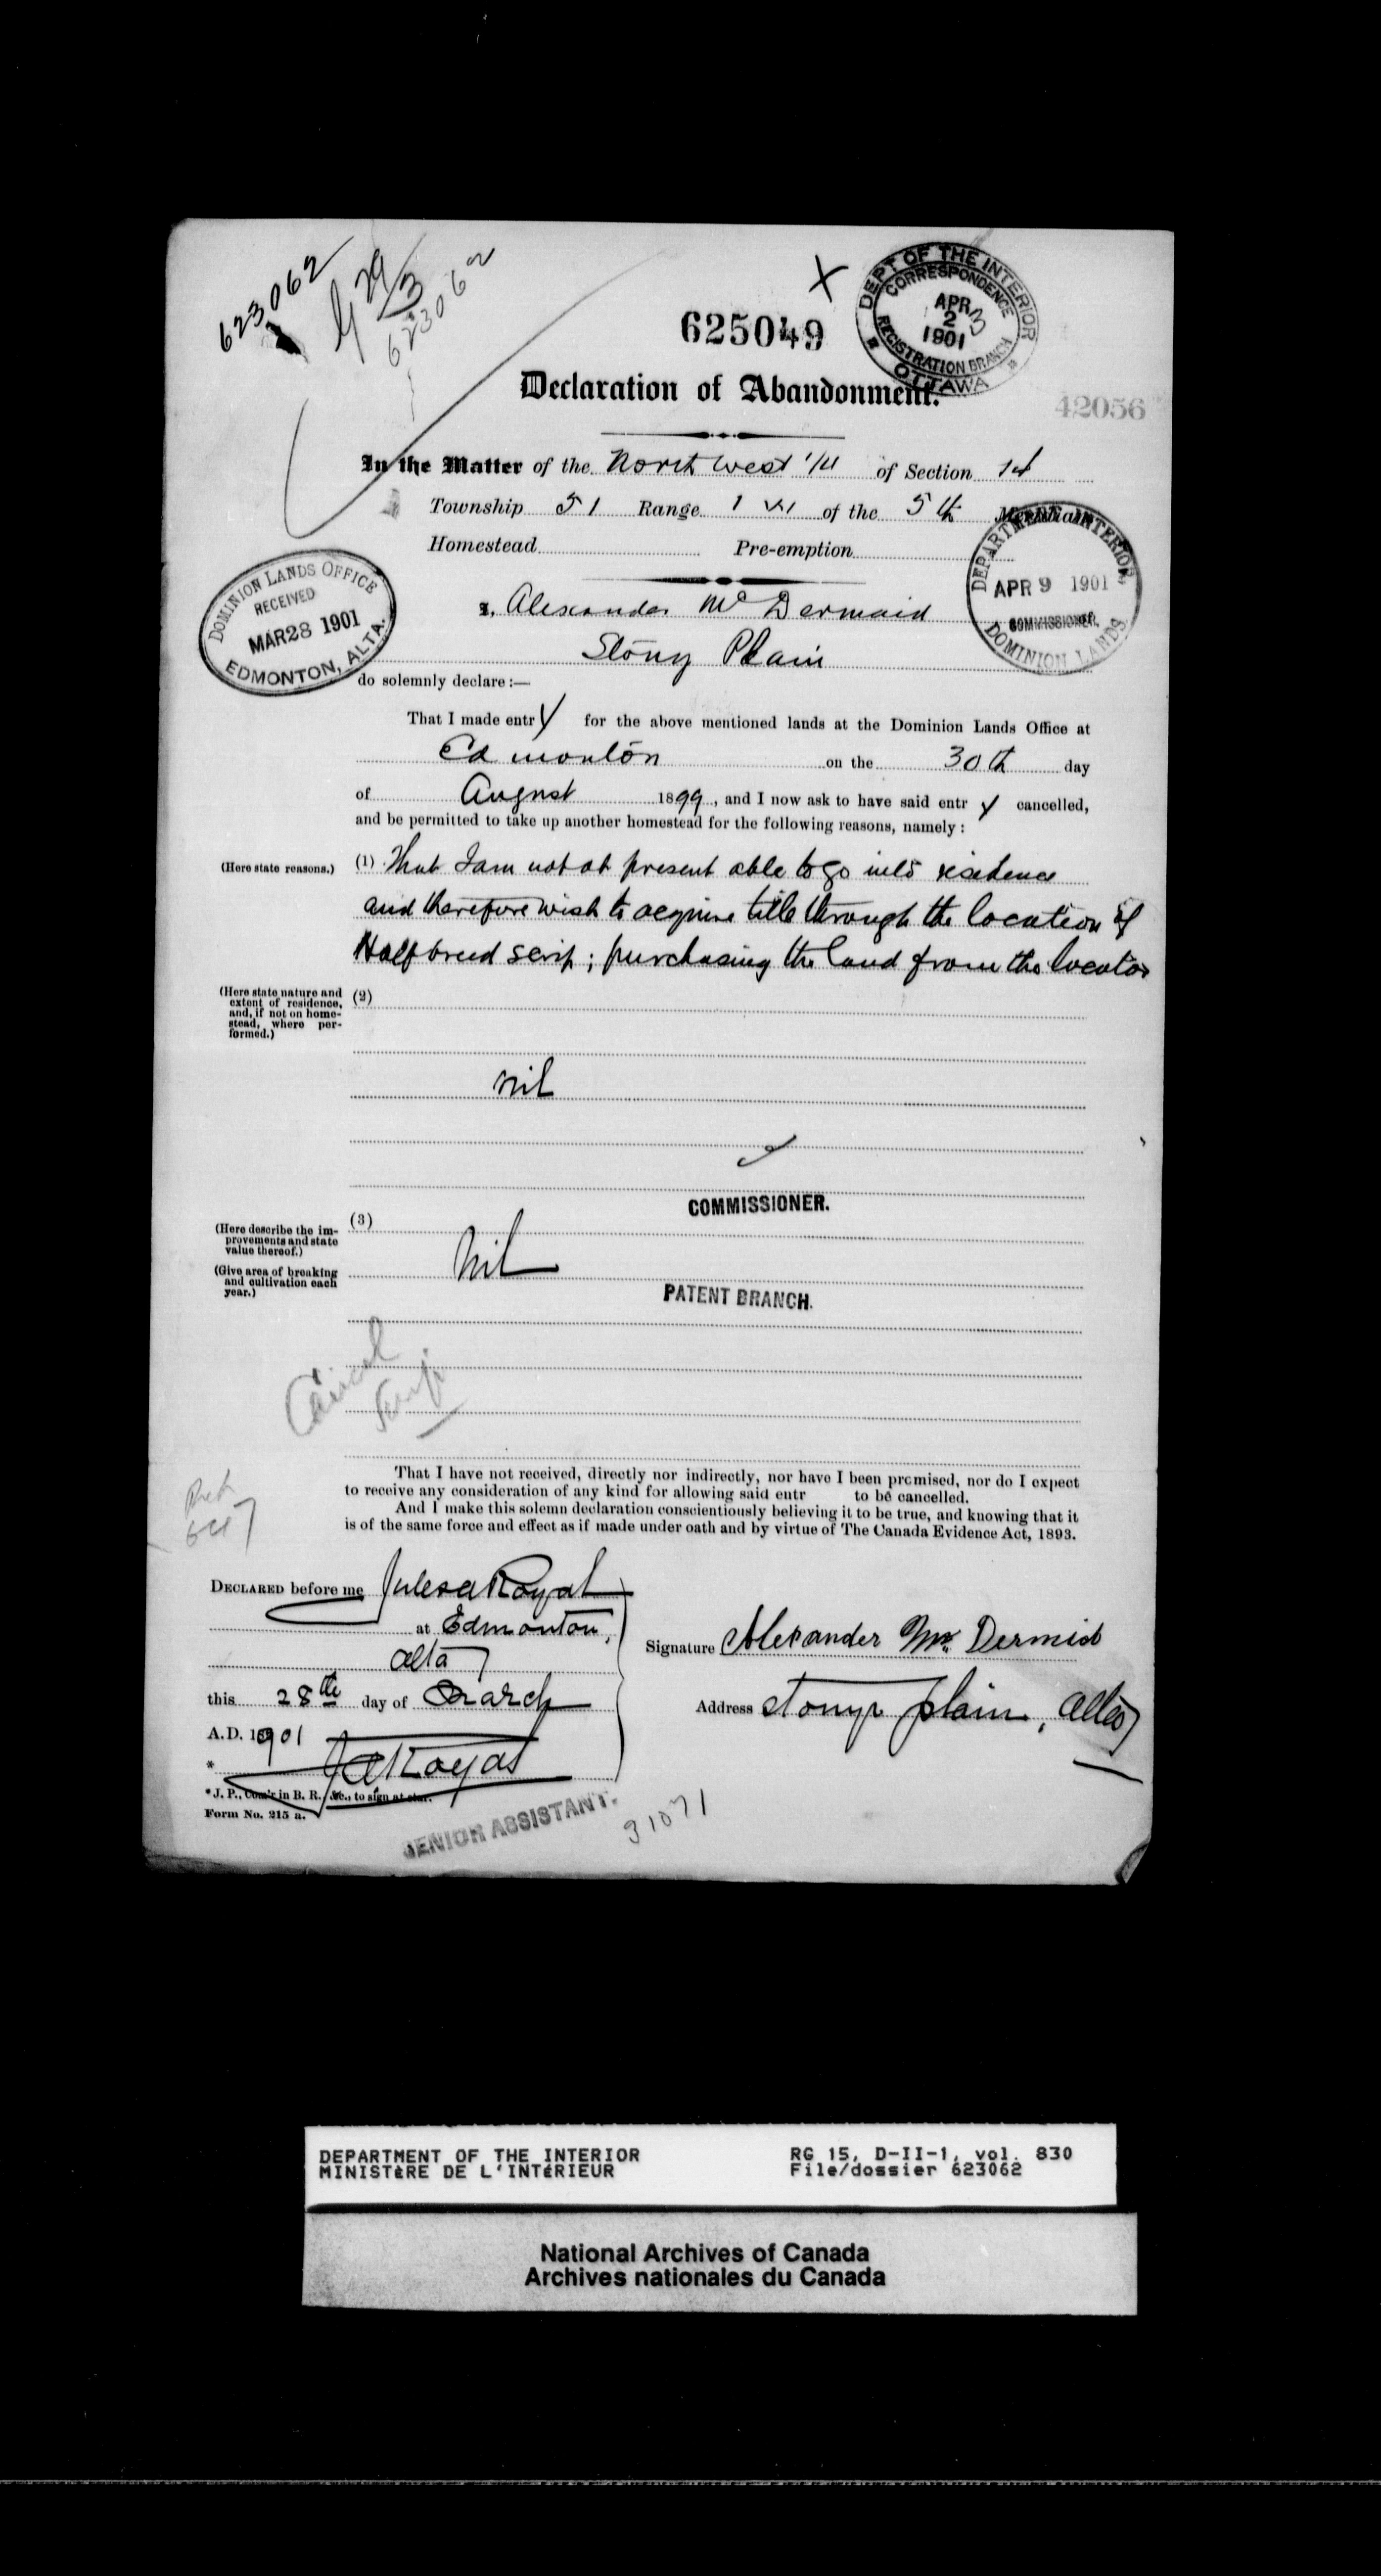 623062
623062
625049
DEPT OF THE INTERIOR
CORRESPONDENCE
APR
2
1901
REGISTRATION BRANCH
OTTAWA
Declaration of Abandonment.
42056
In the Matter of the North West 1/4 of Section 14
Township 51 Range 1 W of the 5th Meridian
Homestead Pre-emption
DEPARTMENT INTERIOR,
APR 9 1901
COMMISSIONER,
DOMINION LANDS
DOMINION LANDS OFFICE
RECEIVED
MAR 28 1901
EDMONTON, ALTA.
I, Alexander McDermaid
Stony Plain
do solemnly declare:—
That I made entry for the above mentioned lands at the Dominion Lands Office at
Edmonton on the 30th day
of August 1899, and I now ask to have said entry cancelled,
and be permitted to take up another homestead for the following reasons, namely:
(Here state reasons.) (1) That I am not at present able to go into residence
and therefore wish to acquire title through the location of
Half breed scrip; purchasing the land from the locator
(Here state nature and
extent of residence,
and, if not on home-
stead, where per-
formed.)
(2)
nil
COMMISSIONER.
(Here describe the im-
provements and state
value thereof.)
(Give area of breaking
and cultivation each
year.)
(3)
Nil
PATENT BRANCH.
Cancel
That I have not received, directly nor indirectly, nor have I been promised, nor do I expect
to receive any consideration of any kind for allowing said entr to be cancelled.
And I make this solemn declaration conscientiously believing it to be true, and knowing that it
is of the same force and effect as if made under oath and by virtue of The Canada Evidence Act, 1893.
DECLARED before me Jules A Royal
at Edmonton,
Alta
this 28th day of March
A.D. 1901
* J A Royal
Signature Alexander Mc Dermid
Address Stony plain, Alta
*J. P., Com'r in B. R., &c., to sign at star.
Form No. 215 a.
SENIOR ASSISTANT.
31071
DEPARTMENT OF THE INTERIOR
MINISTÈRE DE L'INTÉRIEUR
RG 15, D-II-1, vol. 830
File/dossier 623062
National Archives of Canada
Archives nationales du Canada